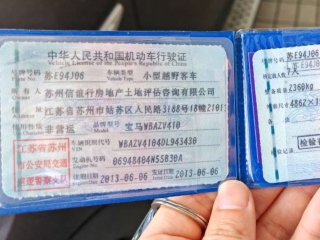 中华人民共和国机动车行驶证
Vehicle License of the People's Republic of China
号牌号码 苏E94J06 车辆类型 小型越野客车
所有人 苏州信谊行房地产土地评估咨询有限公司
住址 江苏省苏州市姑苏区人民路3188号18幢
使用性质 非营运 品牌型号 宝马WBAZV410
江苏省苏州
市公安局交通
巡逻警察支队
车辆识别代号 WBAZV4104DL943430
发动机号码 06948404N55B30A
注册日期 2013-06-06 发证日期 2013-06-06
号牌号码 苏E94J06
7人
2360kg
检验